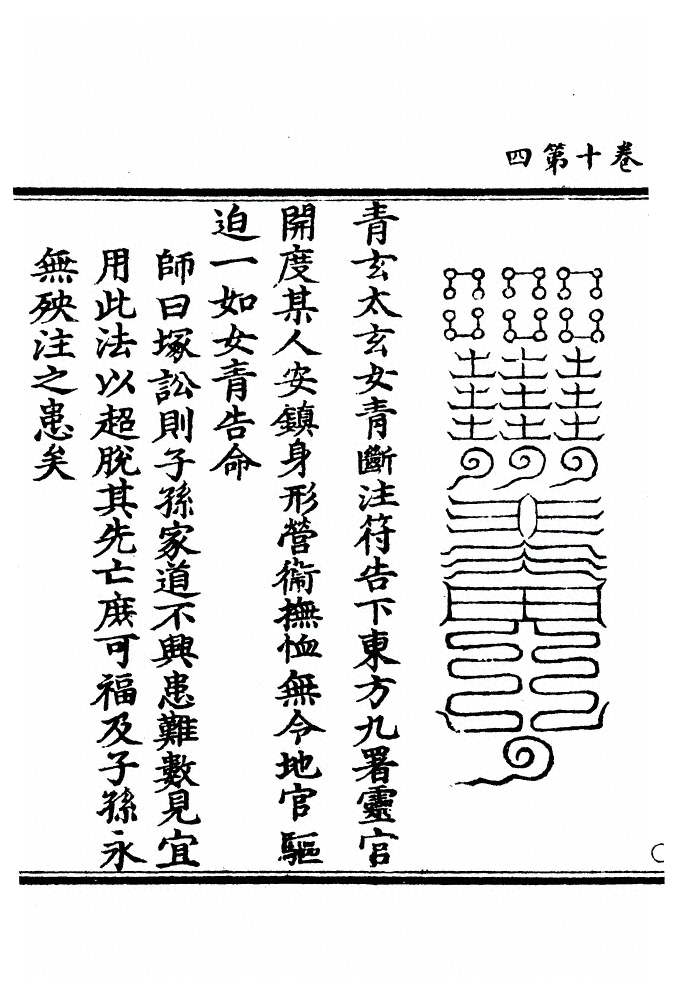 卷十第四
青玄太玄女青斷注符告下東方九署靈官
開度某人安鎮身形營衛撫恤無令地官驅
迫一如女青告命
師曰塚訟則子孫家道不興患難數見宜
用此法以超脫其先亡庶可福及子孫永
無殃注之患矣